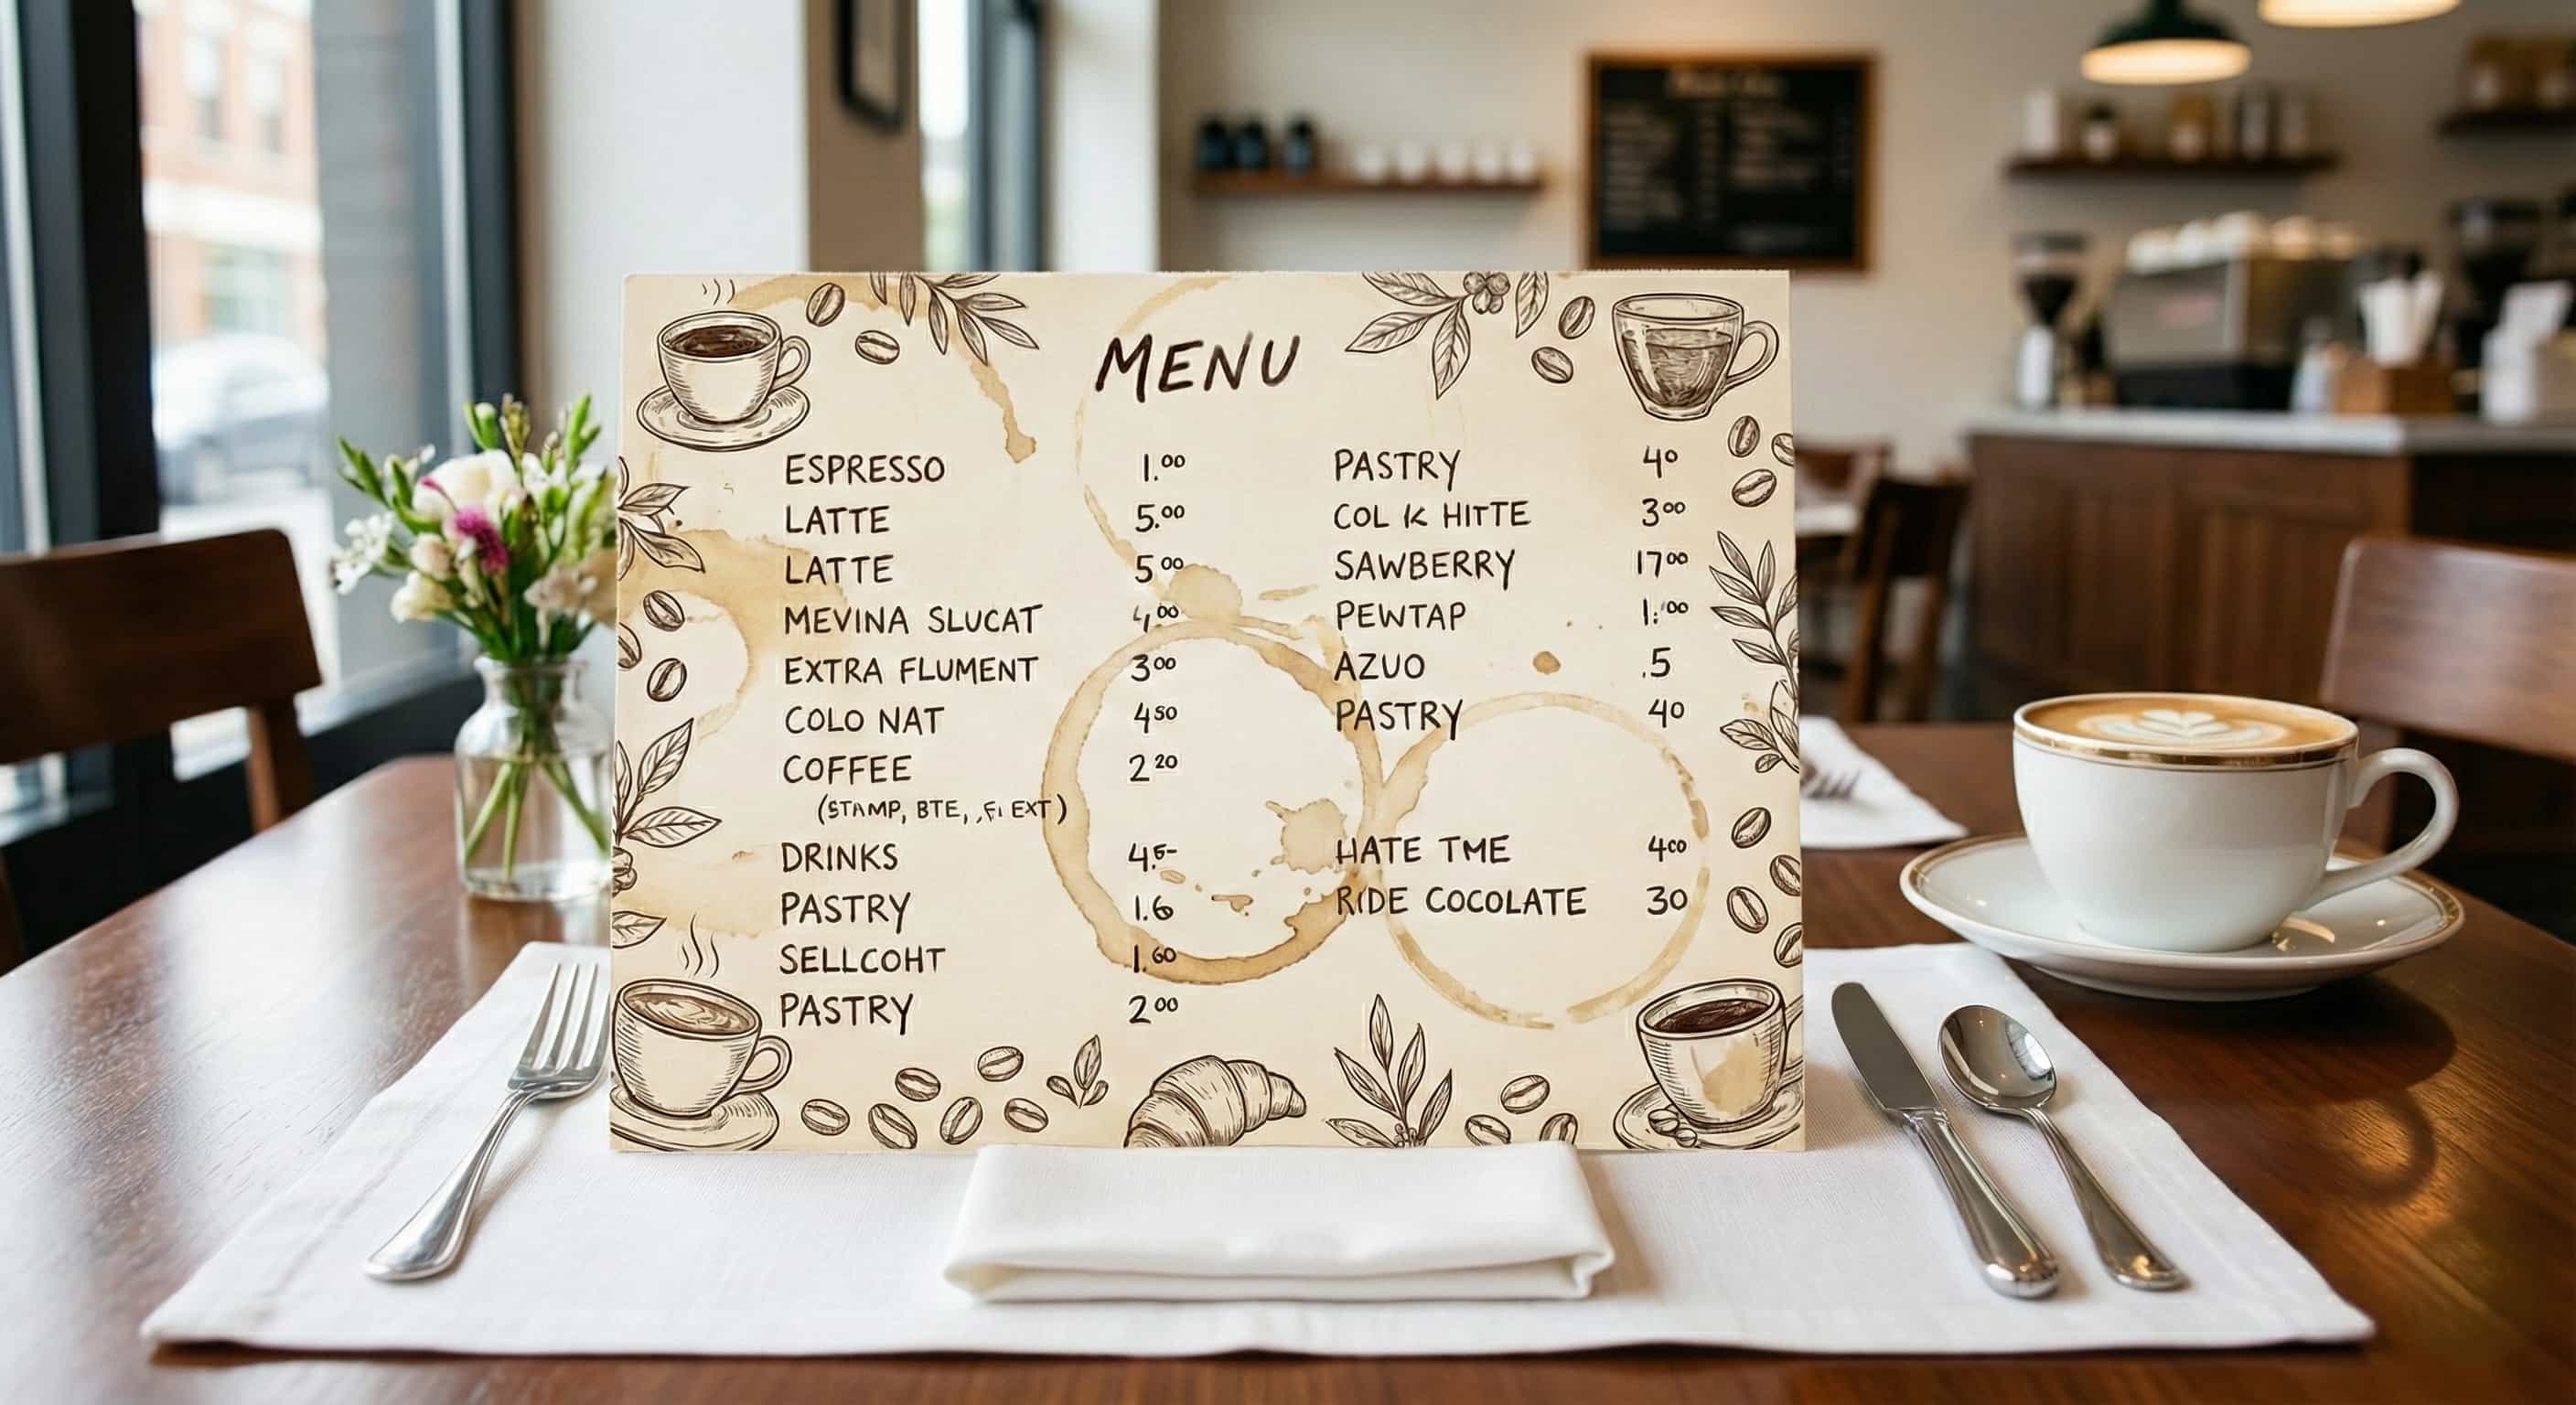 MENU
ESPRESSO 1.00
LATTE 5.00
LATTE 5 00
MEVINA SLUCAT 4,00
EXTRA FLUMENT 3 00
COLO NAT 4 50
COFFEE 2 20
(STAMP, BTE, EXT)
DRINKS 4.5-
PASTRY 1.6
SELLCOHT 1.60
PASTRY 2 00
PASTRY 40
COL K HITTE 3 00
SAWBERRY 17 00
PEWTAP 1:00
AZUO .5
PASTRY 40
HATE TME 4 00
RIDE COCOLATE 30